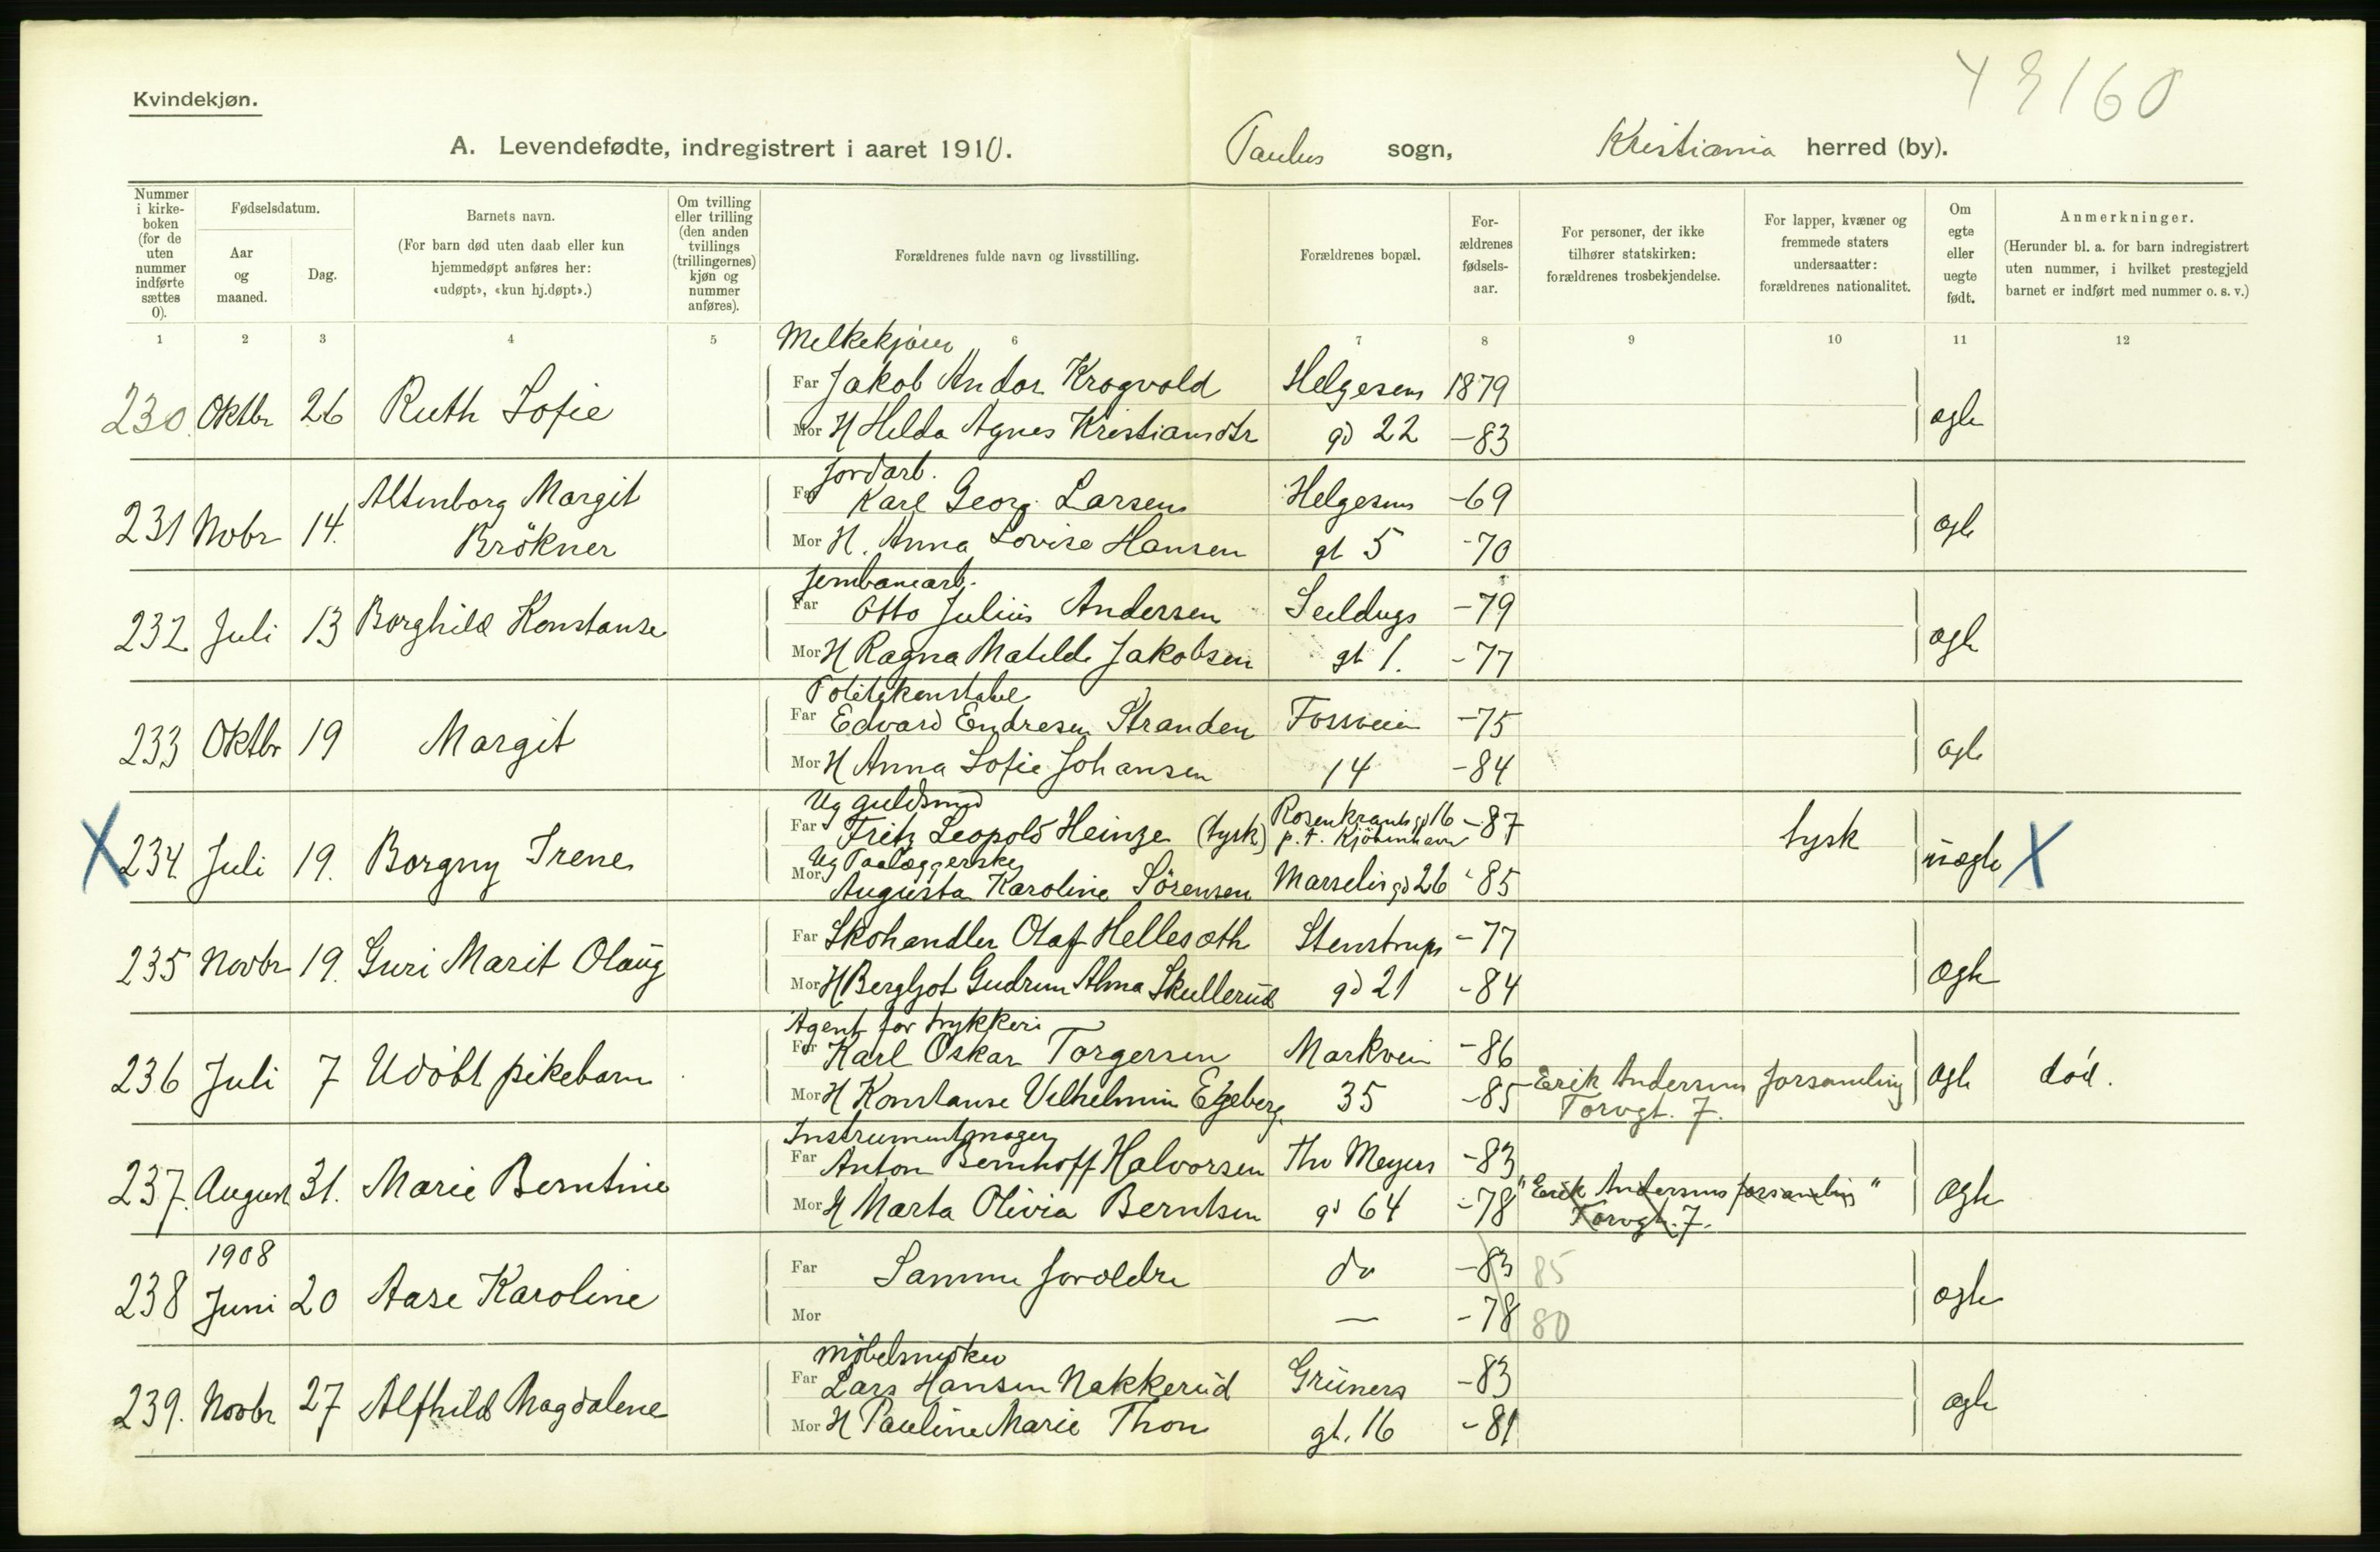 48160
Kvindekjøn.
A. Levendefødte, indregistrert i aaret 1910. Paulus sogn, Kristiania herred (by).
Nummer i kirkeboken (for de uten nummer indførte sættes 0).
Fødselsdatum.
Aar og maaned.
Dag.
Barnets navn.
(For barn død uten daab eller kun hjemmedøpt anføres her: «udøpt», «kun hj.døpt».)
Om tvilling eller trilling (den anden tvillings (trillingernes) kjøn og nummer anføres).
Forældrenes fulde navn og livsstilling.
Forældrenes bopæl.
Forældrenes fødselsaar.
For personer, der ikke tilhører statskirken: forældrenes trosbekjendelse.
For lapper, kvæner og fremmede staters undersaatter: forældrenes nationalitet.
Om egte eller uegte født.
Anmerkninger.
(Herunder bl. a. for barn indregistrert uten nummer, i hvilket prestegjeld barnet er indført med nummer o. s. v.)
1 2 3 4 5 6 7 8 9 10 11 12
Melkekjører
230 Oktbr 26 Ruth Sofie Far Jakob Andor Krogvold Helgesens 1879 ægte
Mor H Helda Agnes Kristiansdtr gd 22 -83
Jordarb.
231 Novbr 14. Altenborg Margit Brökner Far Karl Georg Larsen Helgesens -69 ægte
Mor H. Anna Lovise Hansen gt 5 -70
Jernbanearb.
232 Juli 13 Borghild Konstanse Far Otto Julius Andersen Seildugs -79 ægte
Mor H Ragna Matilde Jakobsen gt 1. -77
Politikonstabel
233 Oktbr 19 Margit Far Edvard Endresen Stranden Fossveien -75 ægte
Mor H Anna Sofie Johansen 14 -84
Ug guldsmed
X 234 Juli 19. Borgny Irene Far Fritz Leopold Heinze (tysk) Rosenkrantz gd 16 p.t. Kjöbenhavn -87 tysk uægte X
Ug Paalæggerske
Mor Augusta Karoline Sörensen Marselis gd 26 -85
235 Novbr 19. Guri Marit Olaug Far Skohandler Olaf Hellesøth Stenstrups -77 ægte
Mor H Bergljot Gudrun Alma Skullerud gd 21 -84
Agent for trykkeri
236 Juli 7 Udöbt pikebarn Far Karl Oskar Torgersen Markvein -86 ægte død.
Mor H Konstanse Vilhelmine Egeberg 35 -85 Erik Andersens forsamling
Torvgt. 7.
Instrumentmager
237. August 31. Marie Berntine Far Anton Bernhoff Halvorsen Thv Meyers -83 ægte
Mor H Marta Olivia Berntsen gd 64 -78 " Erik Andersens forsamling "
Torvgt. 7.
1908
238 Juni 20 Aase Karoline Far Samme forældre do -83 85 ægte
Mor — -78 80
Möbelsnedker
239. Novbr 27 Alfhild Magdalene Far Lars Hansen Nakkerud Grüners -83 ægte
Mor H Pauline Marie Thon gt. 16 -81